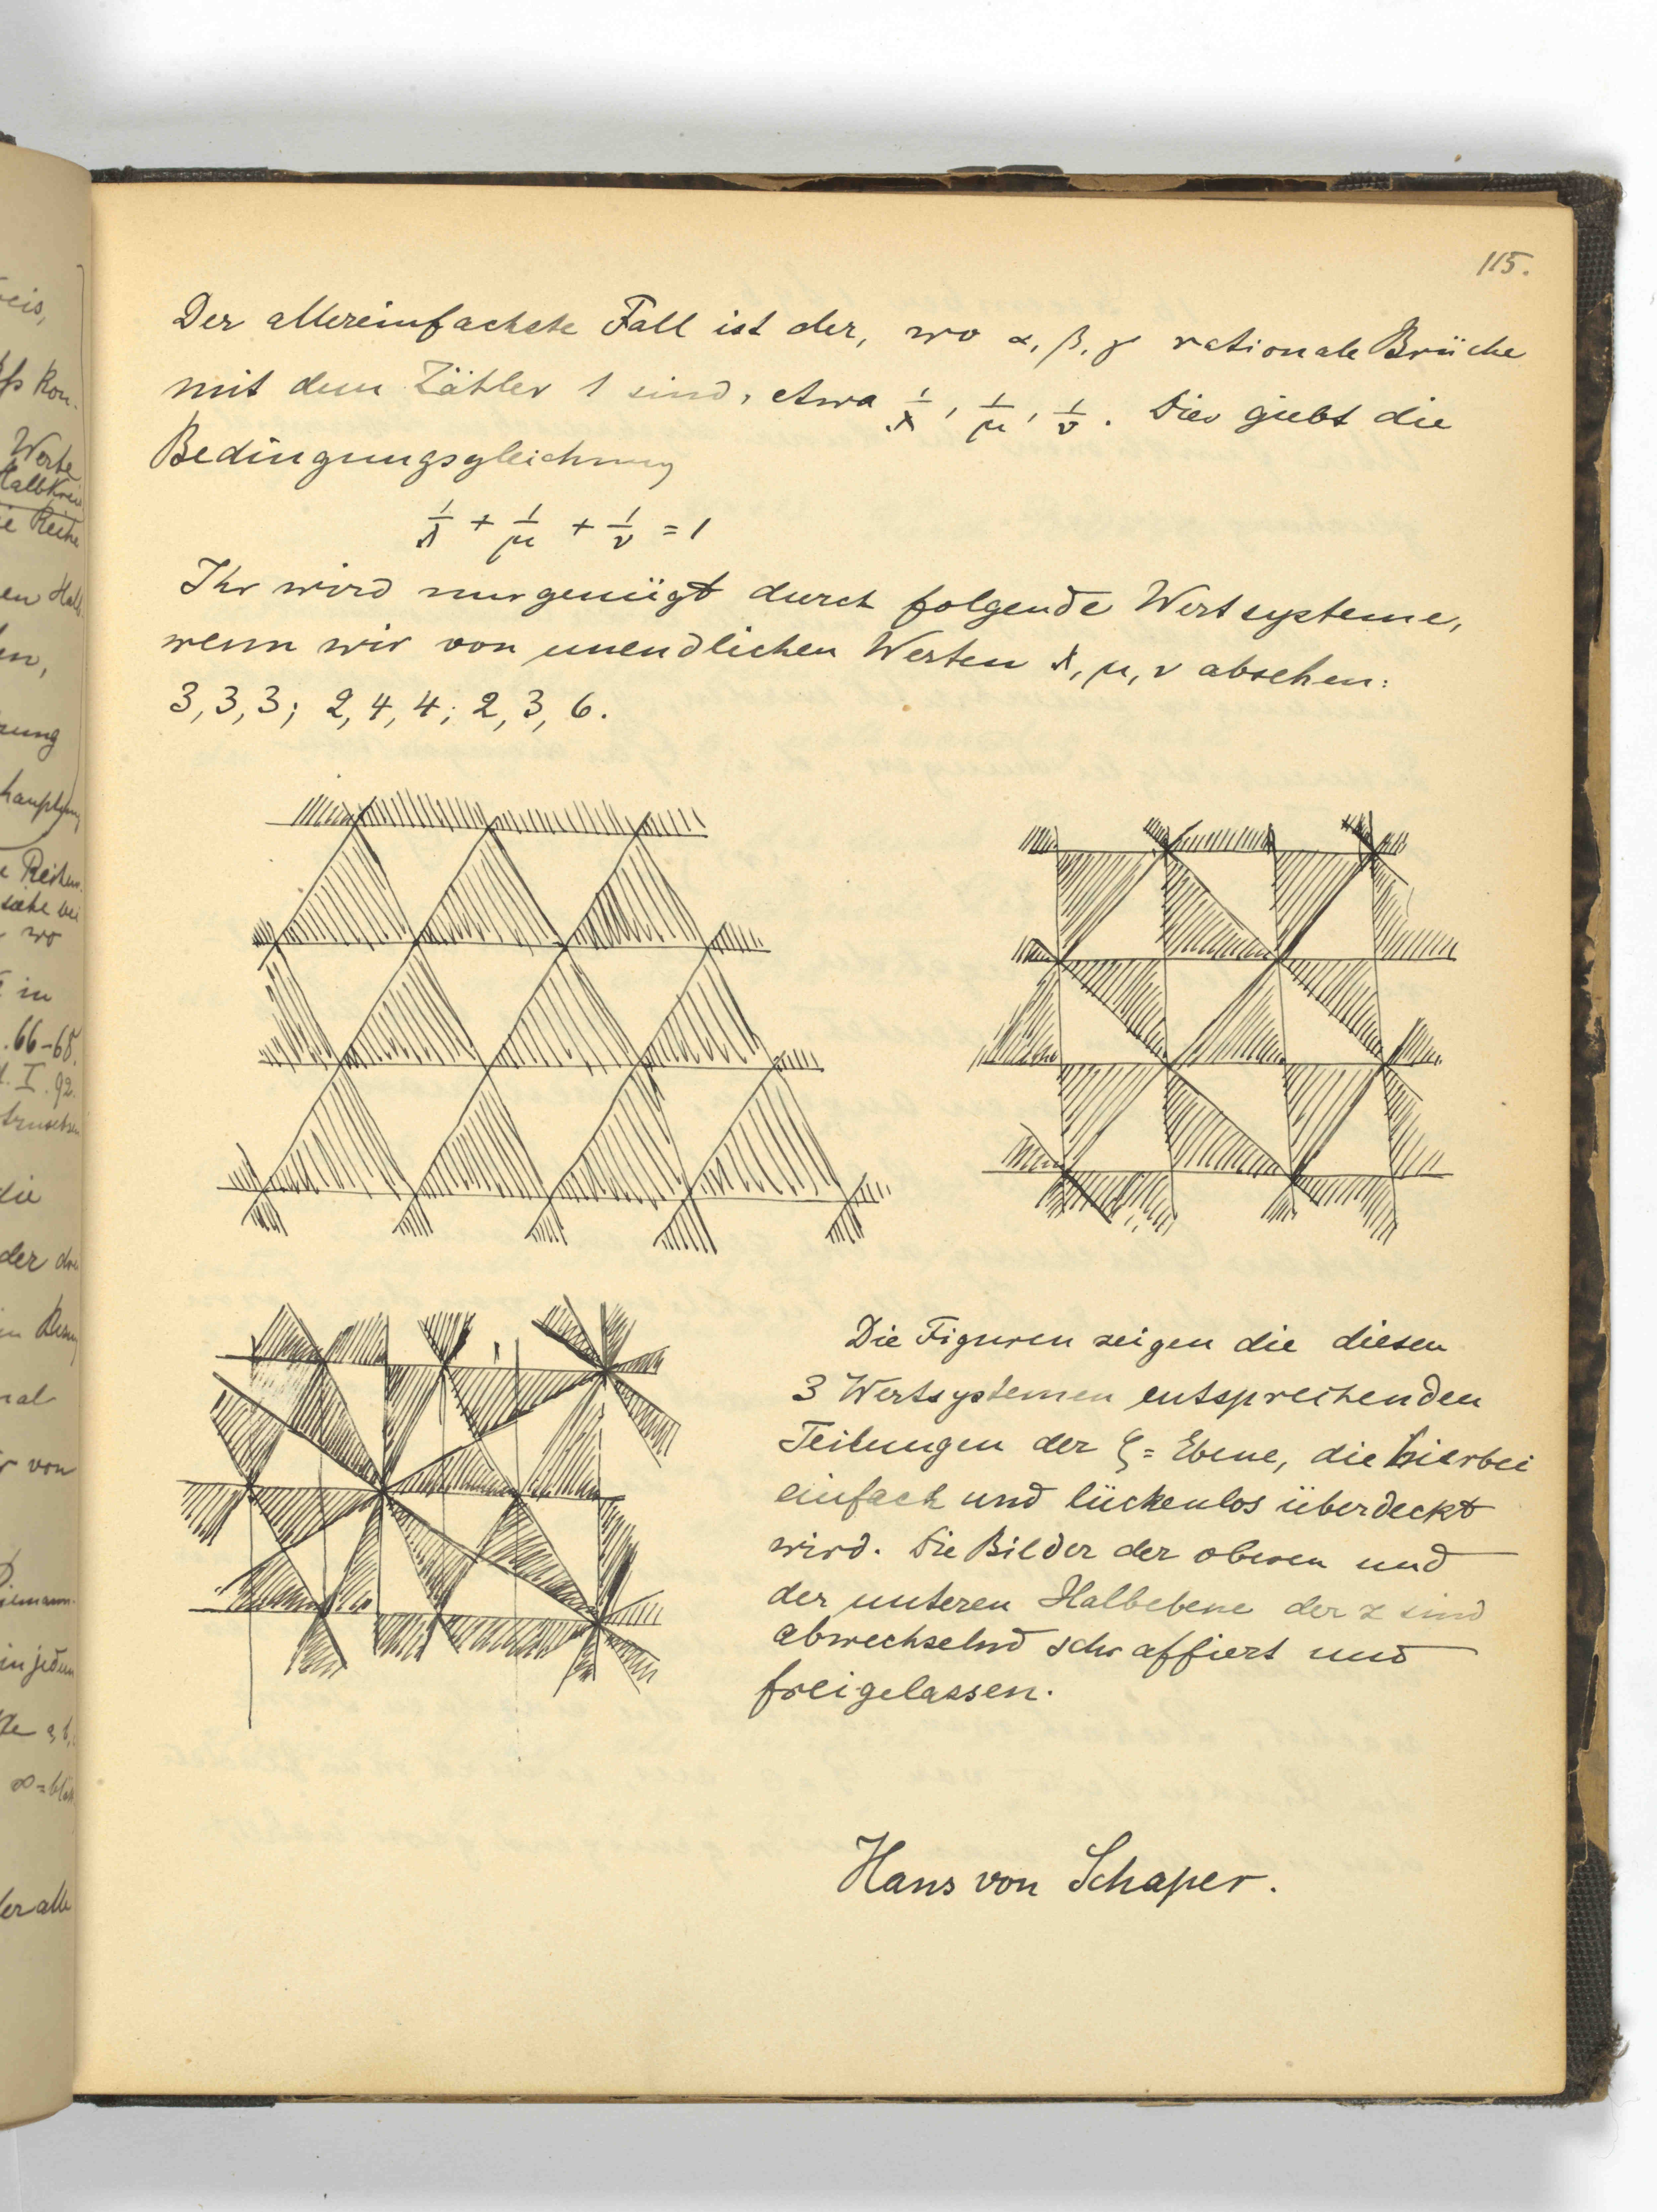 115.
Der allereinfachste Fall ist der, wo α, β, γ rationale Brüche
mit dem Zähler 1 sind, etwa 1/λ, 1/μ, 1/ν. Dies giebt die
Bedingungsgleichung
1/λ + 1/μ + 1/ν = 1
Ihr wird nur genügt durch folgende Wertsysteme,
wenn wir von unendlichen Werten λ, μ, ν absehen:
3,3,3; 2,4,4; 2,3,6.
Die Figuren zeigen die diesen
3 Wertsystemen entsprechenden
Teilungen der ζ=Ebene, die hierbei
einfach und lückenlos überdeckt
wird. Die Bilder der oberen und
der unteren Halbebene der z sind
abwechselnd schraffiert und
freigelassen.
Hans von Schaper.
eis,
Kon-
Werte
Halbkreis
ie Reihe
en Halb
en,
rung
Reihen
wo
in
. 66-68.
I. 92.
die
der
nal
r von
Riemann
in jedem
∞=blät
der alle